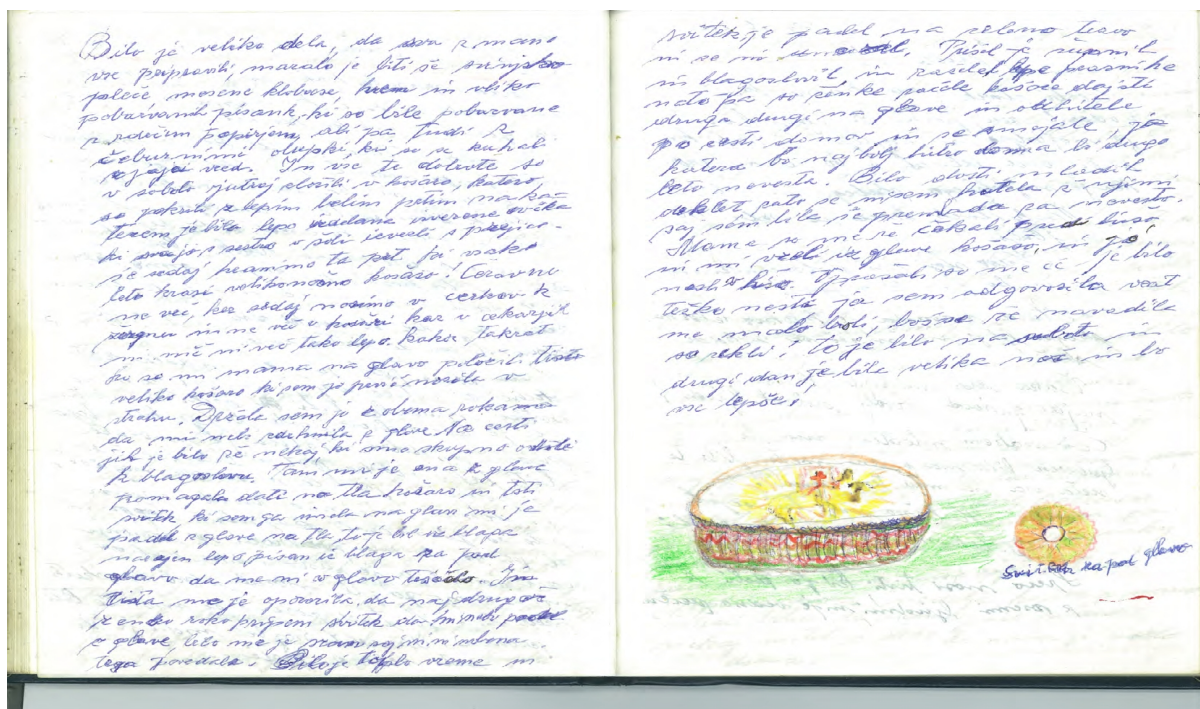 Bilo je veliko dela, da sva z mamo
vse pripravili, moralo je biti še svinjsko
pleče, mesene klobase, hren in veliko
pobarvanih pisank, ki so bile pobarvane
z rdečim papirjem, ali pa tudi z
čebulnimi olupki, ki so se kuhali
z jajci vred. In vse te dobrote so
v soboto zjutraj zložili v košaro, katero
so pokrili z lepim belim prtom na ka
terem je bila lepo izdelana uvezena ovčka
ki svojo s sestro v šoli izvezli s prejico
še sedaj hranimo ta prt saj vsako
leto krasi velikonočno košaro! Čeravno
ne več, ker sedaj nosimo v cerkev k
žegnu in ne več v košari kar v cekarjih
ni nič ni več tako lepo. Kakor takrat
ko so mi mama na glavo položili tisto
veliko košaro ki sem jo prvič nosila v
strahu. Držala sem jo z obema rokama
da mi nebi zdrsnila z glave. Na cesti
jih je bilo že nekaj ki smo skupno odšle
k blagoslovu. Tam mi je ena z glave
pomagala dati na tla košaro in tisti
svitek ki sem ga imela na glavi mi je
padel z glave na tla to je bil iz blaga
narejen lepo pisan iz blaga za pod
glavo da me ni v glavo tiščalo. In
tista me je opozorila da naj drugič
z eno roko primem svitek da bi nebi padel
z glave, bilo me je sram saj mi ni nobena
tega povedala. Bilo je toplo vreme ni
svitek je padel na zeleno travo
ni se ni Prišel je župnik
in blagoslovil, in začel pesmike
nato pa so ženske začele košare dajati
druga drugi na glave in obitele
po cesti domov in se smejale, ja
katera bo najbolj hitro doma bi drugo
leto nevesta. Bilo dosti mladih
deklet, zato se nisem hotela z njimi
saj sem bila še premlada za nevesto.
Mama so me že čakali pred hišo
in mi vzeli iz glave košaro, in jo
nesli v hišo. Vprašali so me če je bilo
težko nesti ja sem odgovorila vrat
me malo boli, boš se že navadila
so rekli! To je bilo na soboto in
drugi dan je bila velika noč in bo
vse lepše!
Svitek za pod glavo